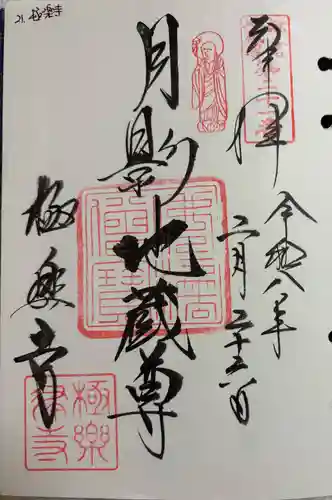 21. 極楽寺
奉拝
令和八年
二月二十二日
月影地蔵尊
極楽寺